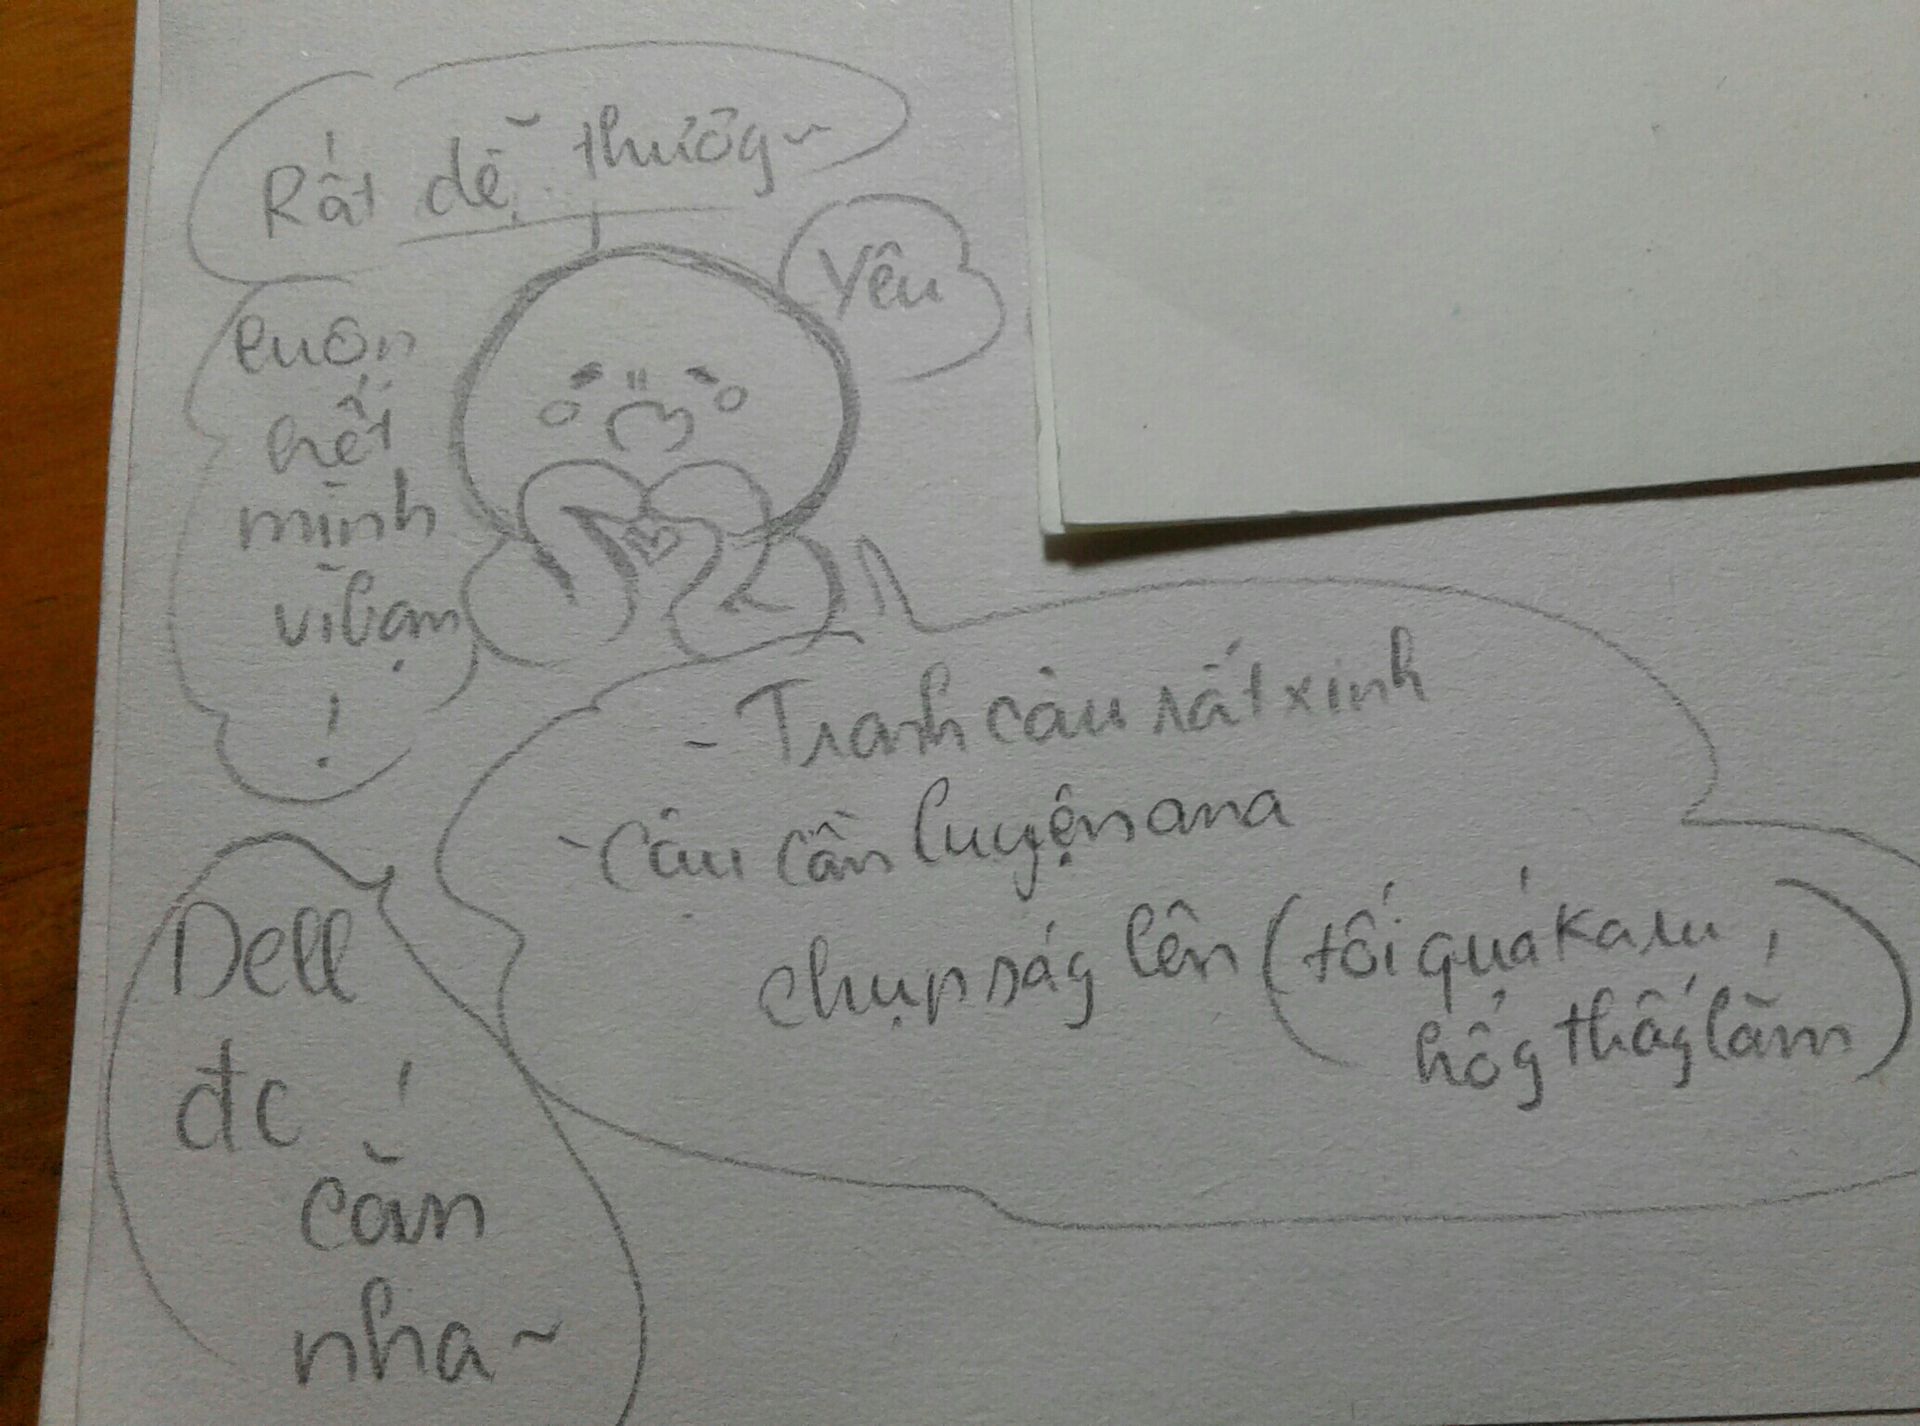 Rất dễ thươg~
Yêu
luôn
hết
mình
vì bạn
!
- Tranh cậu rất xinh
- Cậu cần luyện ana
chụp ság lên (tối quá Karu
hổg thấy lắm)
Dell
đc
cắn
nha~